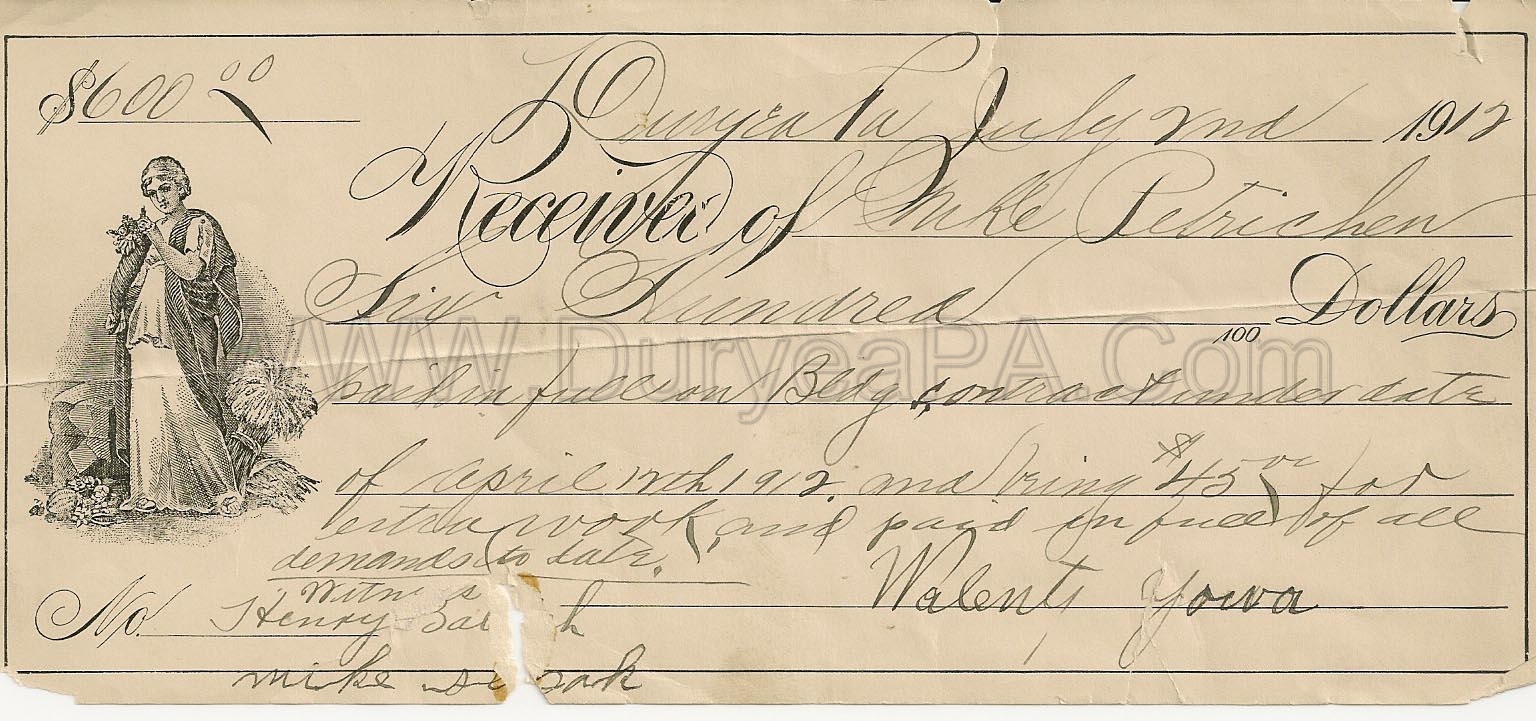 $600 00
Duryea Pa July 2nd 1912
Received of Mike Petrichen
Six Hundred 100 Dollars
WWW.DuryeaPA.Com
paid in full on Bldg, contract under date
of April 12th 1912. and $45 00 for
extra work, and paid in full of all
demands to date.
Witn s
No. Henry h
Walenty Yowa
mike